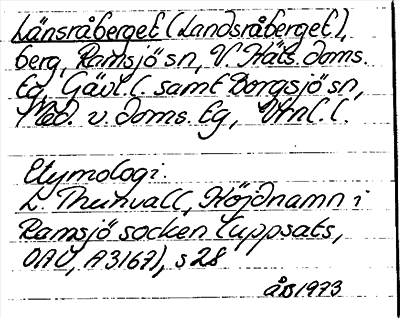 Länsråberget (Landsråberget),
berg, Ramsjö sn, V. Häls. doms.
tg, Gävl. l. samt Borgsjö sn,
Med. v. doms. tg, Vtnl. l.
Etymologi.
L. Thunvall, Höjdnamn i
Ramsjö socken (uppsats,
OAU, A3167), s 28
ÅB 1973